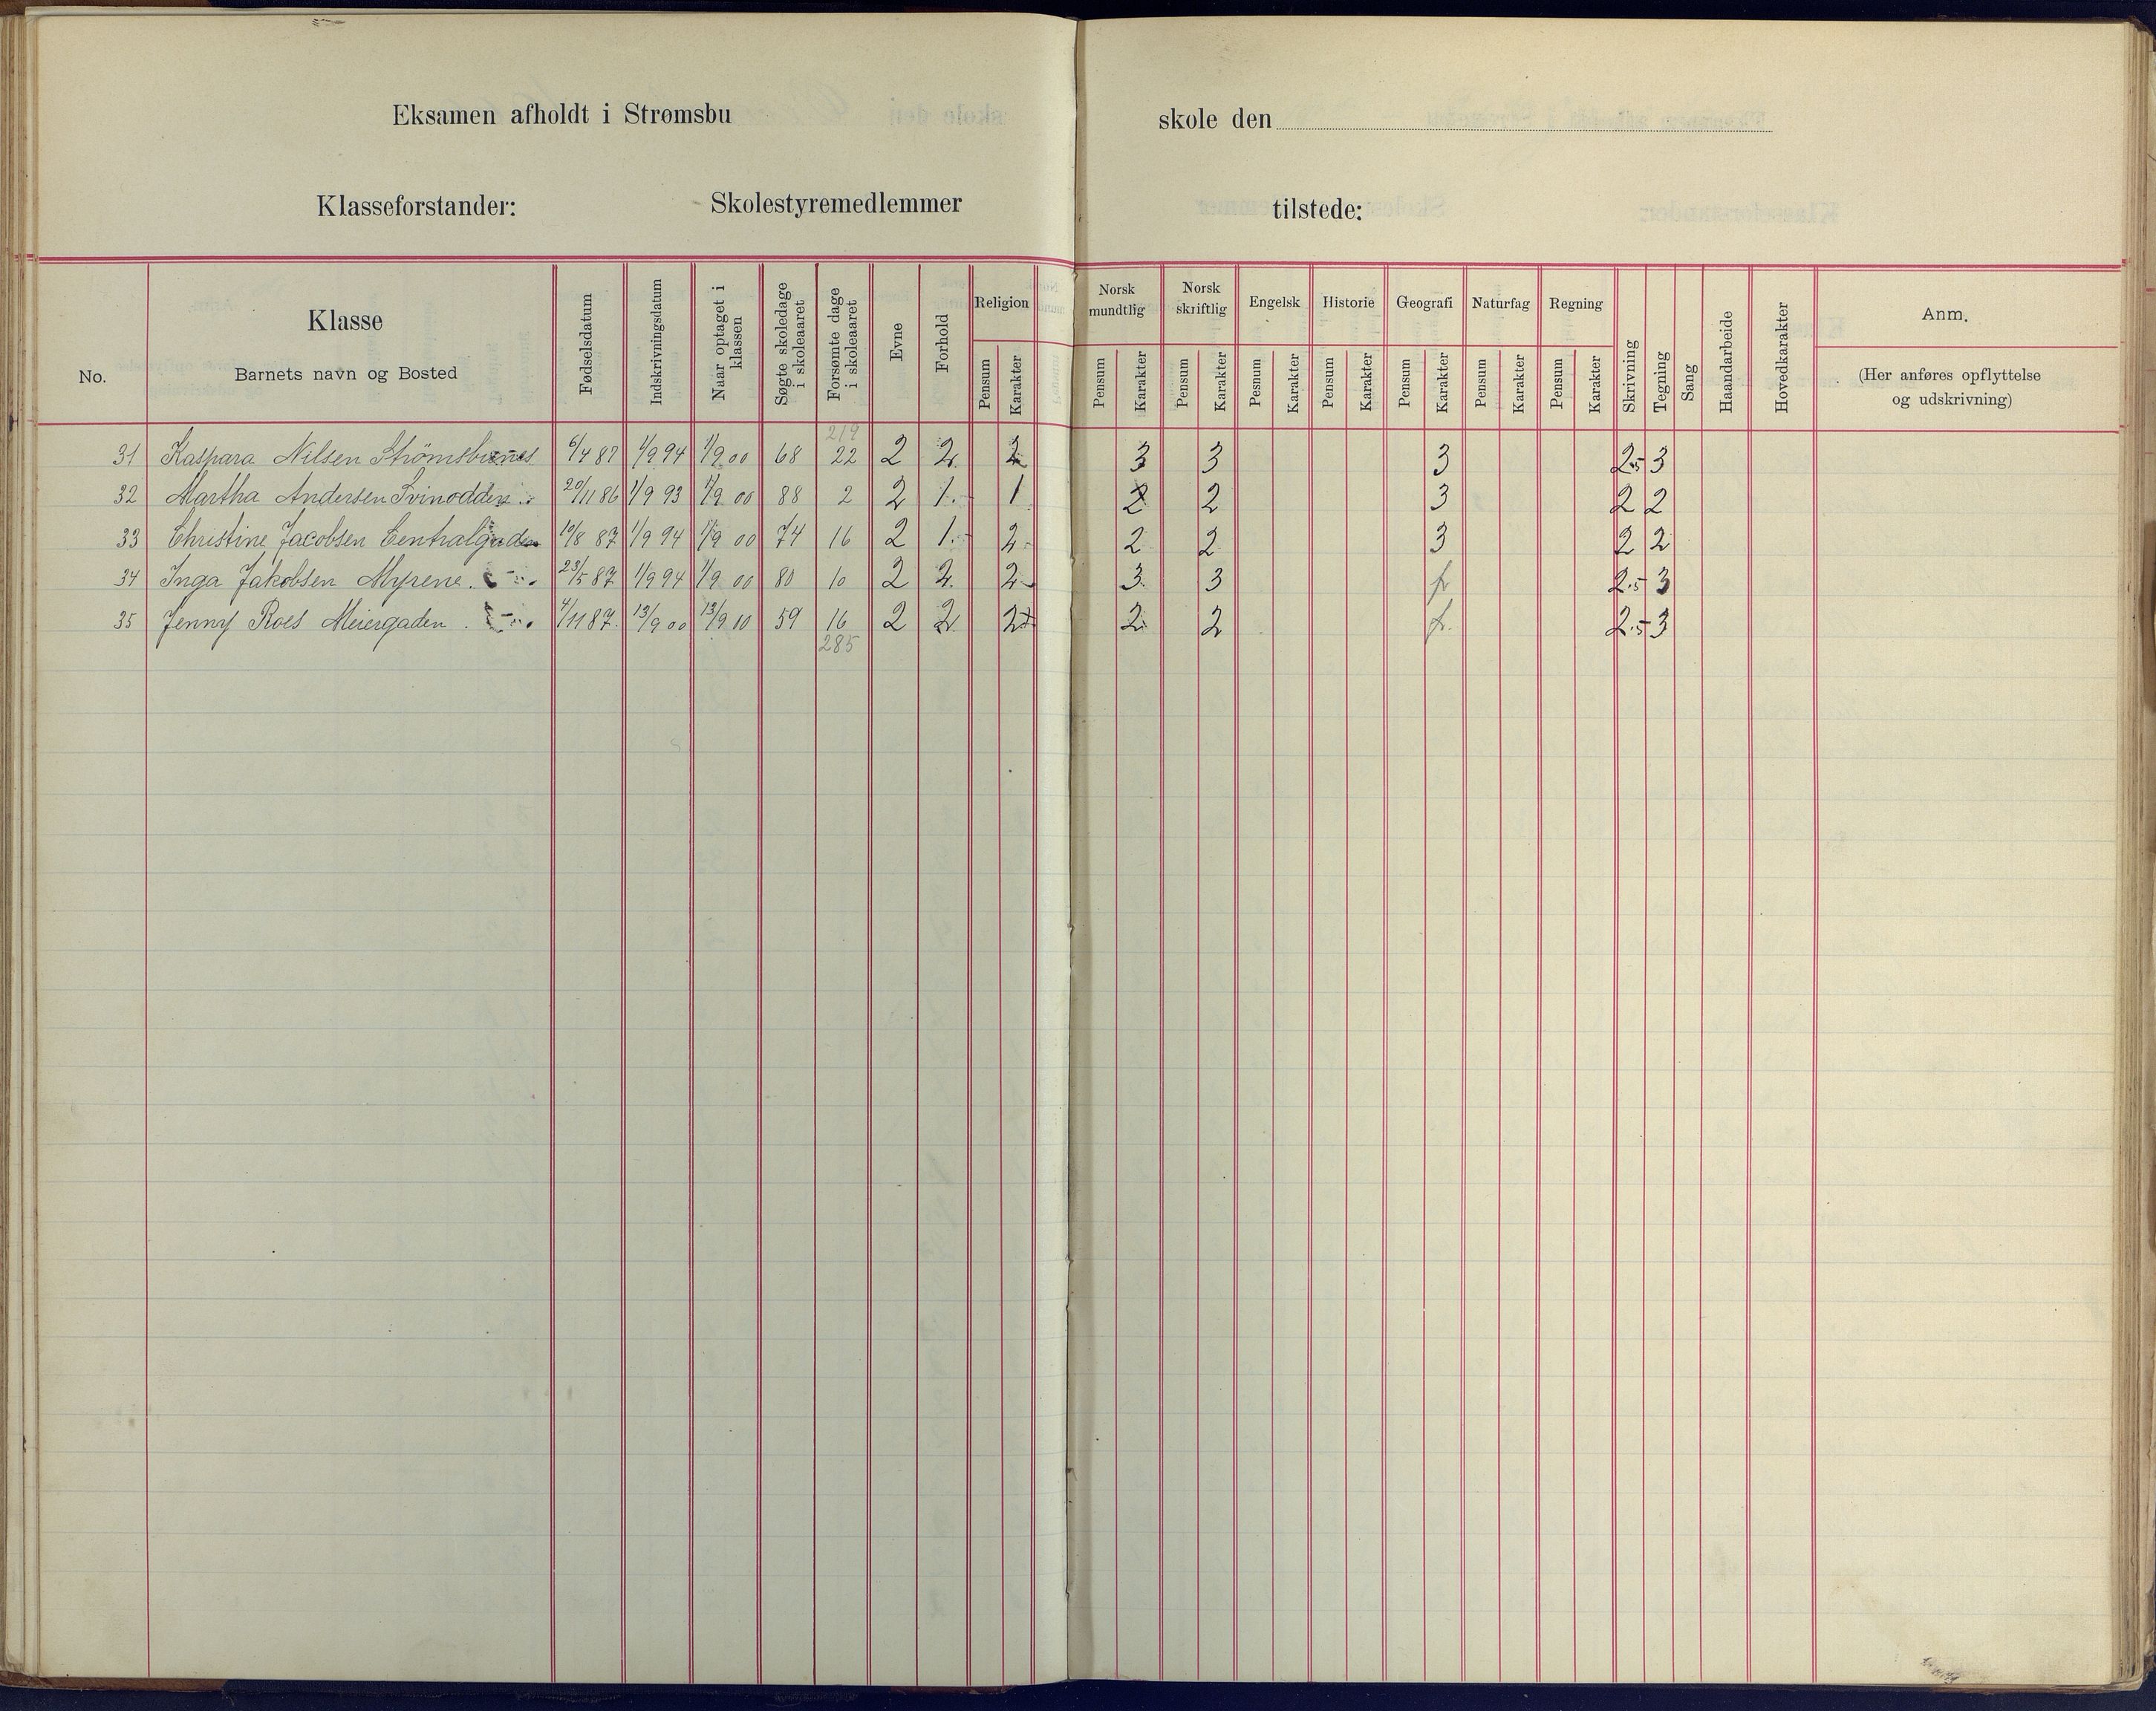 Eksamen afholdt i Strømsbu skole den
Klasseforstander: Skolestyremedlemmer tilstede:
No.
Klasse
Barnets navn og Bosted
Fødselsdatum
Indskrivningsdatum
Naar optaget i klassen
Søgte skoledage i skoleaaret
Forsømte dage i skoleaaret
Evne
Forhold
Religion
Pensum Karakter
Norsk mundtlig
Pensum Karakter
Norsk skriftlig
Pensum Karakter
Engelsk
Pesnum Karakter
Historie
Pensum Karakter
Geografi
Pensum Karakter
Naturfag
Pensum Karakter
Regning
Pensum Karakter
Skrivning
Tegning
Sang
Haandarbeide
Hovedkarakter
Anm.
(Her anføres opflyttelse
og udskrivning)
219
31 Kaspara Nilsen Strömsbunes 6/4 87 1/9 94 1/9 00 68 22 2 2 2 3 3 3 2.5 3
32 Martha Andersen Svinodden 20/11 86 1/9 93 1/9 00 88 2 2 1 1 2 2 3 2 2
33 Christine Jacobsen Centralgaden 19/8 87 1/9 94 1/9 00 74 16 2 1 2 2 2 3 2 2
34 Inga Jakobsen Myrene 23/5 87 1/9 94 1/9 00 80 10 2 2 2 3 3 fr 2.5 3
35 Jenny Roes Meiergaden 4/11 87 13/9 00 13/9 10 59 16 2 2 2 2 2 fr. 2.5 3
285